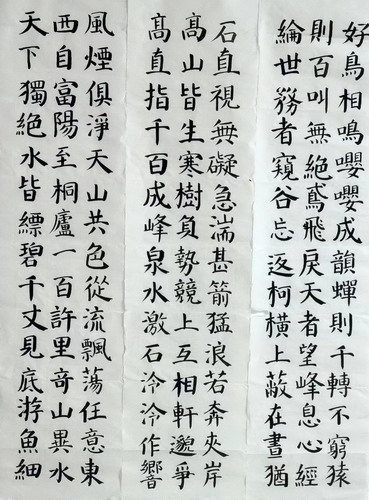 風煙俱淨天山共色從流飄蕩任意東
西自富陽至桐廬一百許里奇山異水
天下獨絕水皆縹碧千丈見底游魚細
石直視無礙急湍甚箭猛浪若奔夾岸
髙山皆生寒樹負勢競上互相軒邈爭
髙直指千百成峰泉水激石泠泠作響
好鳥相鳴嚶嚶成韻蟬則千轉不窮猿
則百叫無絕鳶飛戾天者望峰息心經
綸世務者窺谷忘返柯橫上蔽在晝猶